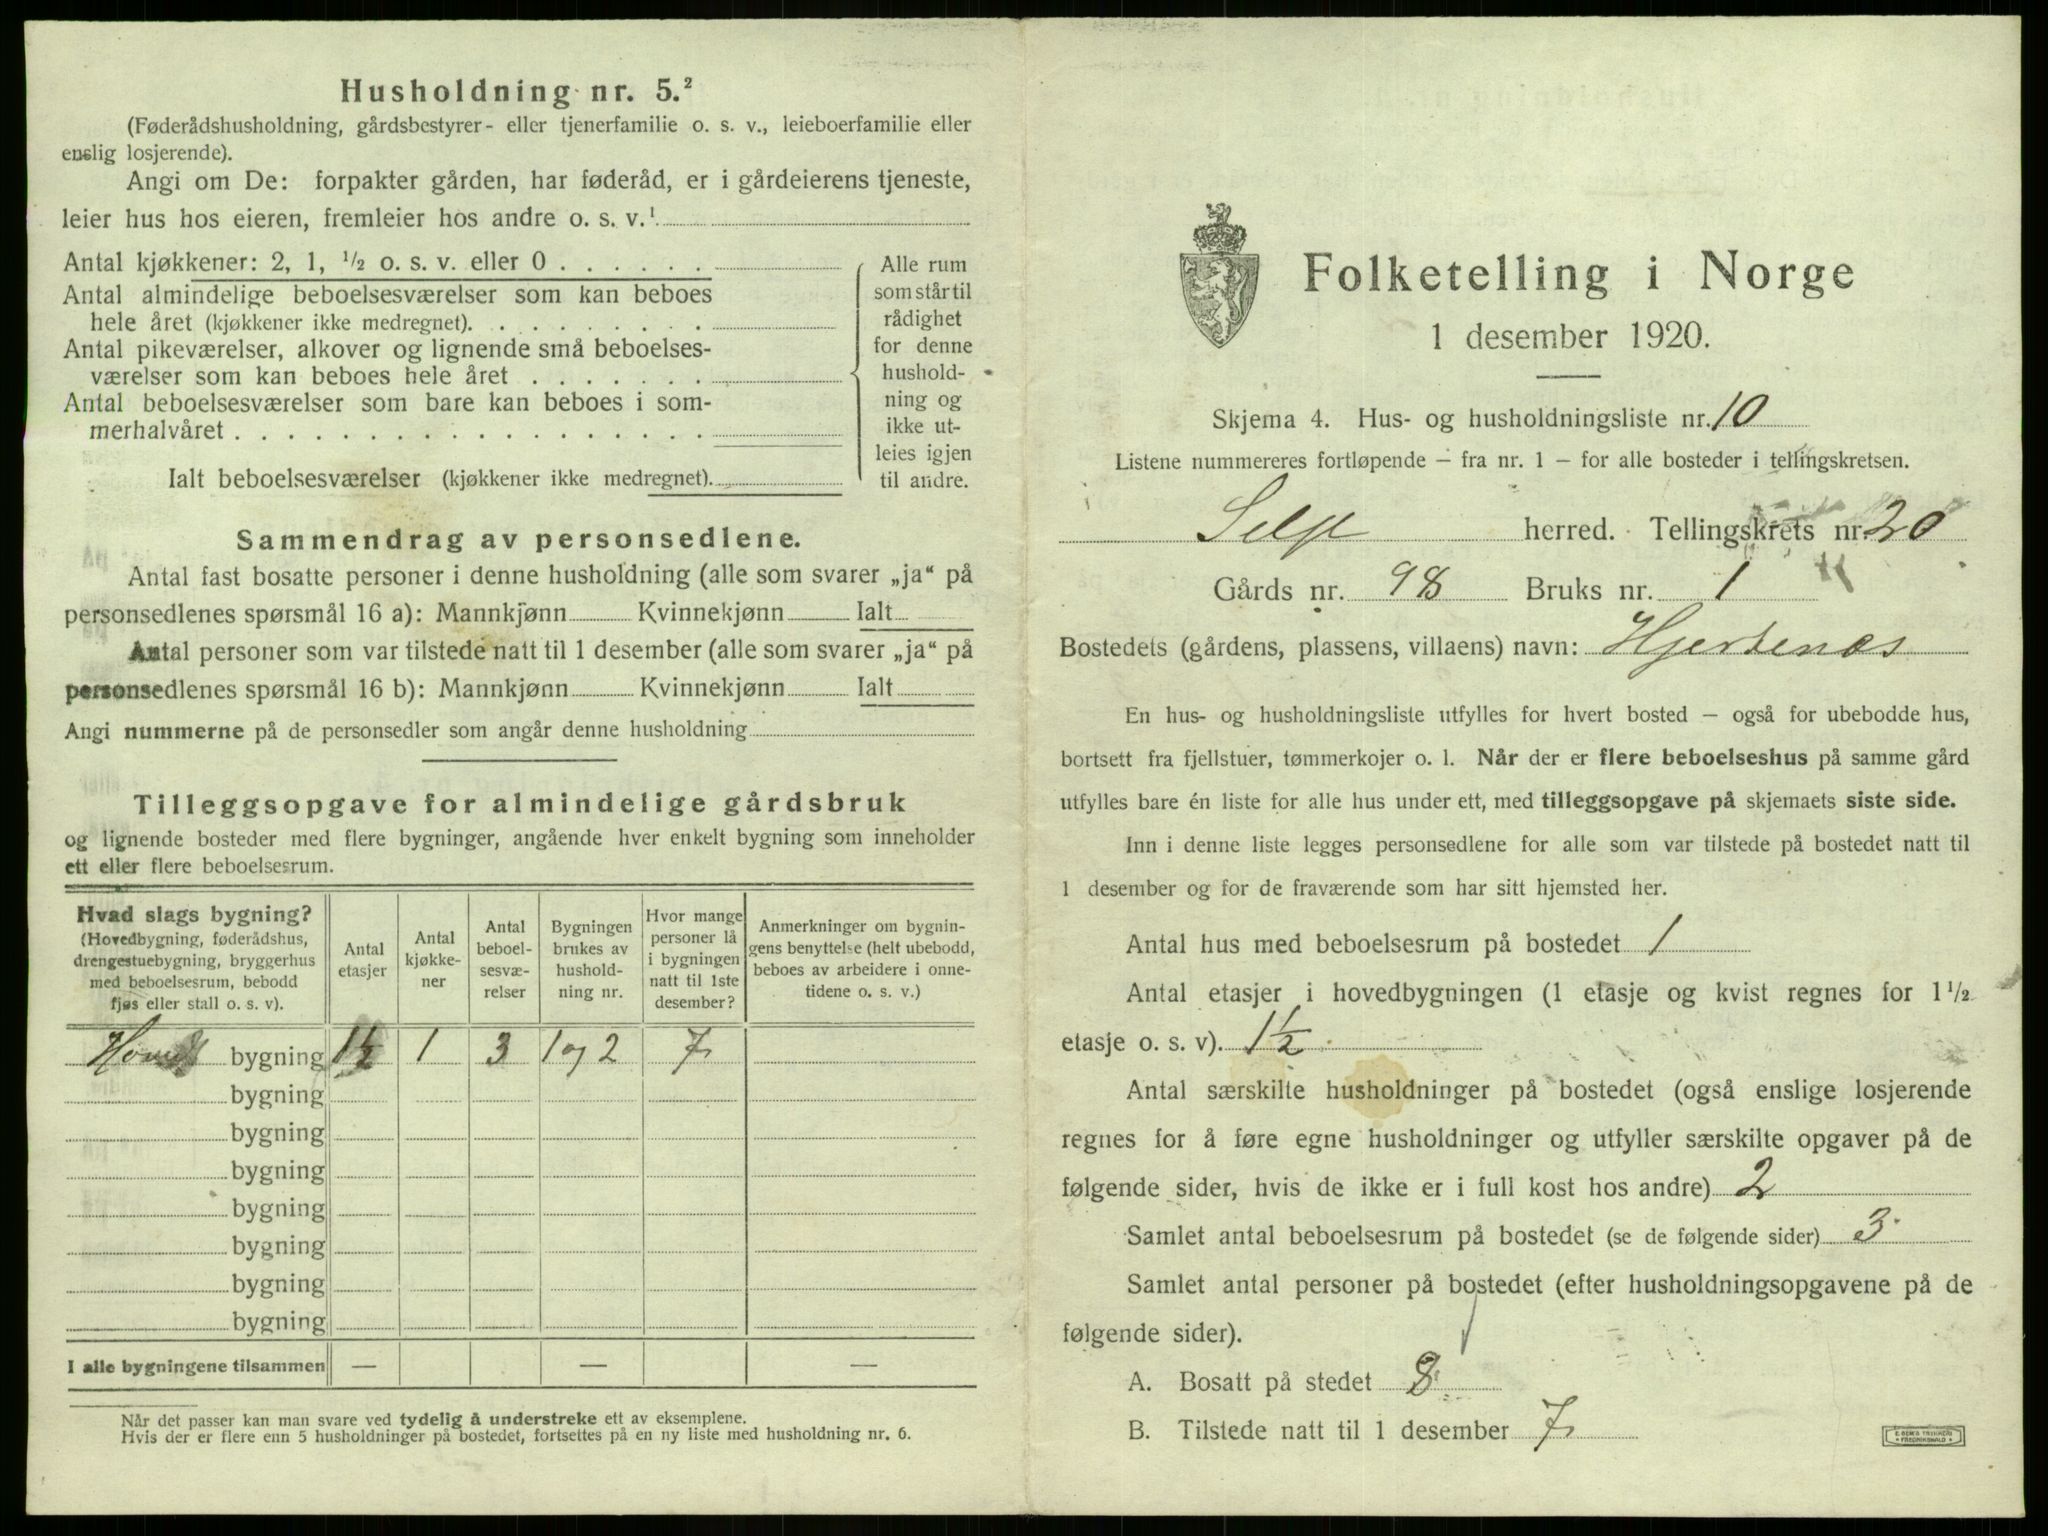 Husholdning nr. 5.²
(Føderådshusholdning, gårdsbestyrer- eller tjenerfamilie o. s. v., leieboerfamilie eller
enslig losjerende).
Angi om De: forpakter gården, har føderåd, er i gårdeierens tjeneste,
leier hus hos eieren, fremleier hos andre o. s. v.¹
Antal kjøkkener: 2, 1, ½ o. s. v. eller 0 . . . . . .
Antal almindelige beboelsesværelser som kan beboes
hele året (kjøkkener ikke medregnet). . . . . . . . .
Antal pikeværelser, alkover og lignende små beboelses-
værelser som kan beboes hele året . . . . . . .
Antal beboelsesværelser som bare kan beboes i som-
merhalvåret . . . . . . . . . . . . . . . . . .
Ialt beboelsesværelser (kjøkkener ikke medregnet).
Alle rum
som står til
rådighet
for denne
hushold-
ning og
ikke ut-
leies igjen
til andre.
Sammendrag av personsedlene.
Antal fast bosatte personer i denne husholdning (alle som svarer „ja“ på
personsedlenes spørsmål 16 a): Mannkjønn Kvinnekjønn Ialt
Antal personer som var tilstede natt til 1 desember (alle som svarer „ja“ på
personsedlenes spørsmål 16 b): Mannkjønn Kvinnekjønn Ialt
Angi nummerne på de personsedler som angår denne husholdning
Tilleggsopgave for almindelige gårdsbruk
og lignende bosteder med flere bygninger, angående hver enkelt bygning som inneholder
ett eller flere beboelsesrum.
Hvad slags bygning?
(Hovedbygning, føderådshus,
drengestuebygning, bryggerhus
med beboelsesrum, bebodd
fjøs eller stall o. s. v).
Antal
etasjer
Antal
kjøkke-
ner
Antal
beboel-
sesvæ-
relser
Bygningen
brukes av
hushold-
ning nr.
Hvor mange
personer lå
i bygningen
natt til 1ste
desember?
Anmerkninger om bygnin-
gens benyttelse (helt ubebodd,
beboes av arbeidere i onne-
tidene o. s. v.)
Hoved bygning 1½ 1 3 1 og 2 7
bygning
bygning
bygning
bygning
bygning
bygning
bygning
I alle bygningene tilsammen — — —
Når det passer kan man svare ved tydelig å understreke ett av eksemplene.
Hvis der er flere enn 5 husholdninger på bostedet, fortsettes på en ny liste med husholdning nr. 6.
Folketelling i Norge
1 desember 1920.
Skjema 4. Hus- og husholdningsliste nr. 10
Listene nummereres fortløpende – fra nr. 1 – for alle bosteder i tellingskretsen.
Selje herred. Tellingskrets nr. 20
Gårds nr. 98 Bruks nr. 1
Bostedets (gårdens, plassens, villaens) navn: Hjertenæs
En hus- og husholdningsliste utfylles for hvert bosted – også for ubebodde hus,
bortsett fra fjellstuer, tømmerkojer o. l. Når der er flere beboelseshus på samme gård
utfylles bare én liste for alle hus under ett, med tilleggsopgave på skjemaets siste side.
Inn i denne liste legges personsedlene for alle som var tilstede på bostedet natt til
1 desember og for de fraværende som har sitt hjemsted her.
Antal hus med beboelsesrum på bostedet 1
Antal etasjer i hovedbygningen (1 etasje og kvist regnes for 1½
etasje o. s. v). 1½
Antal særskilte husholdninger på bostedet (også enslige losjerende
regnes for å føre egne husholdninger og utfyller særskilte opgaver på de
følgende sider, hvis de ikke er i full kost hos andre) 2
Samlet antal beboelsesrum på bostedet (se de følgende sider) 3
Samlet antal personer på bostedet (efter husholdningsopgavene på de
følgende sider).
A. Bosatt på stedet 8
B. Tilstede natt til 1 desember 7